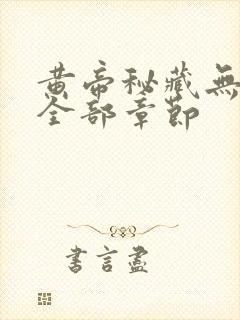 黄帝秘藏無
全部章節
書言盡